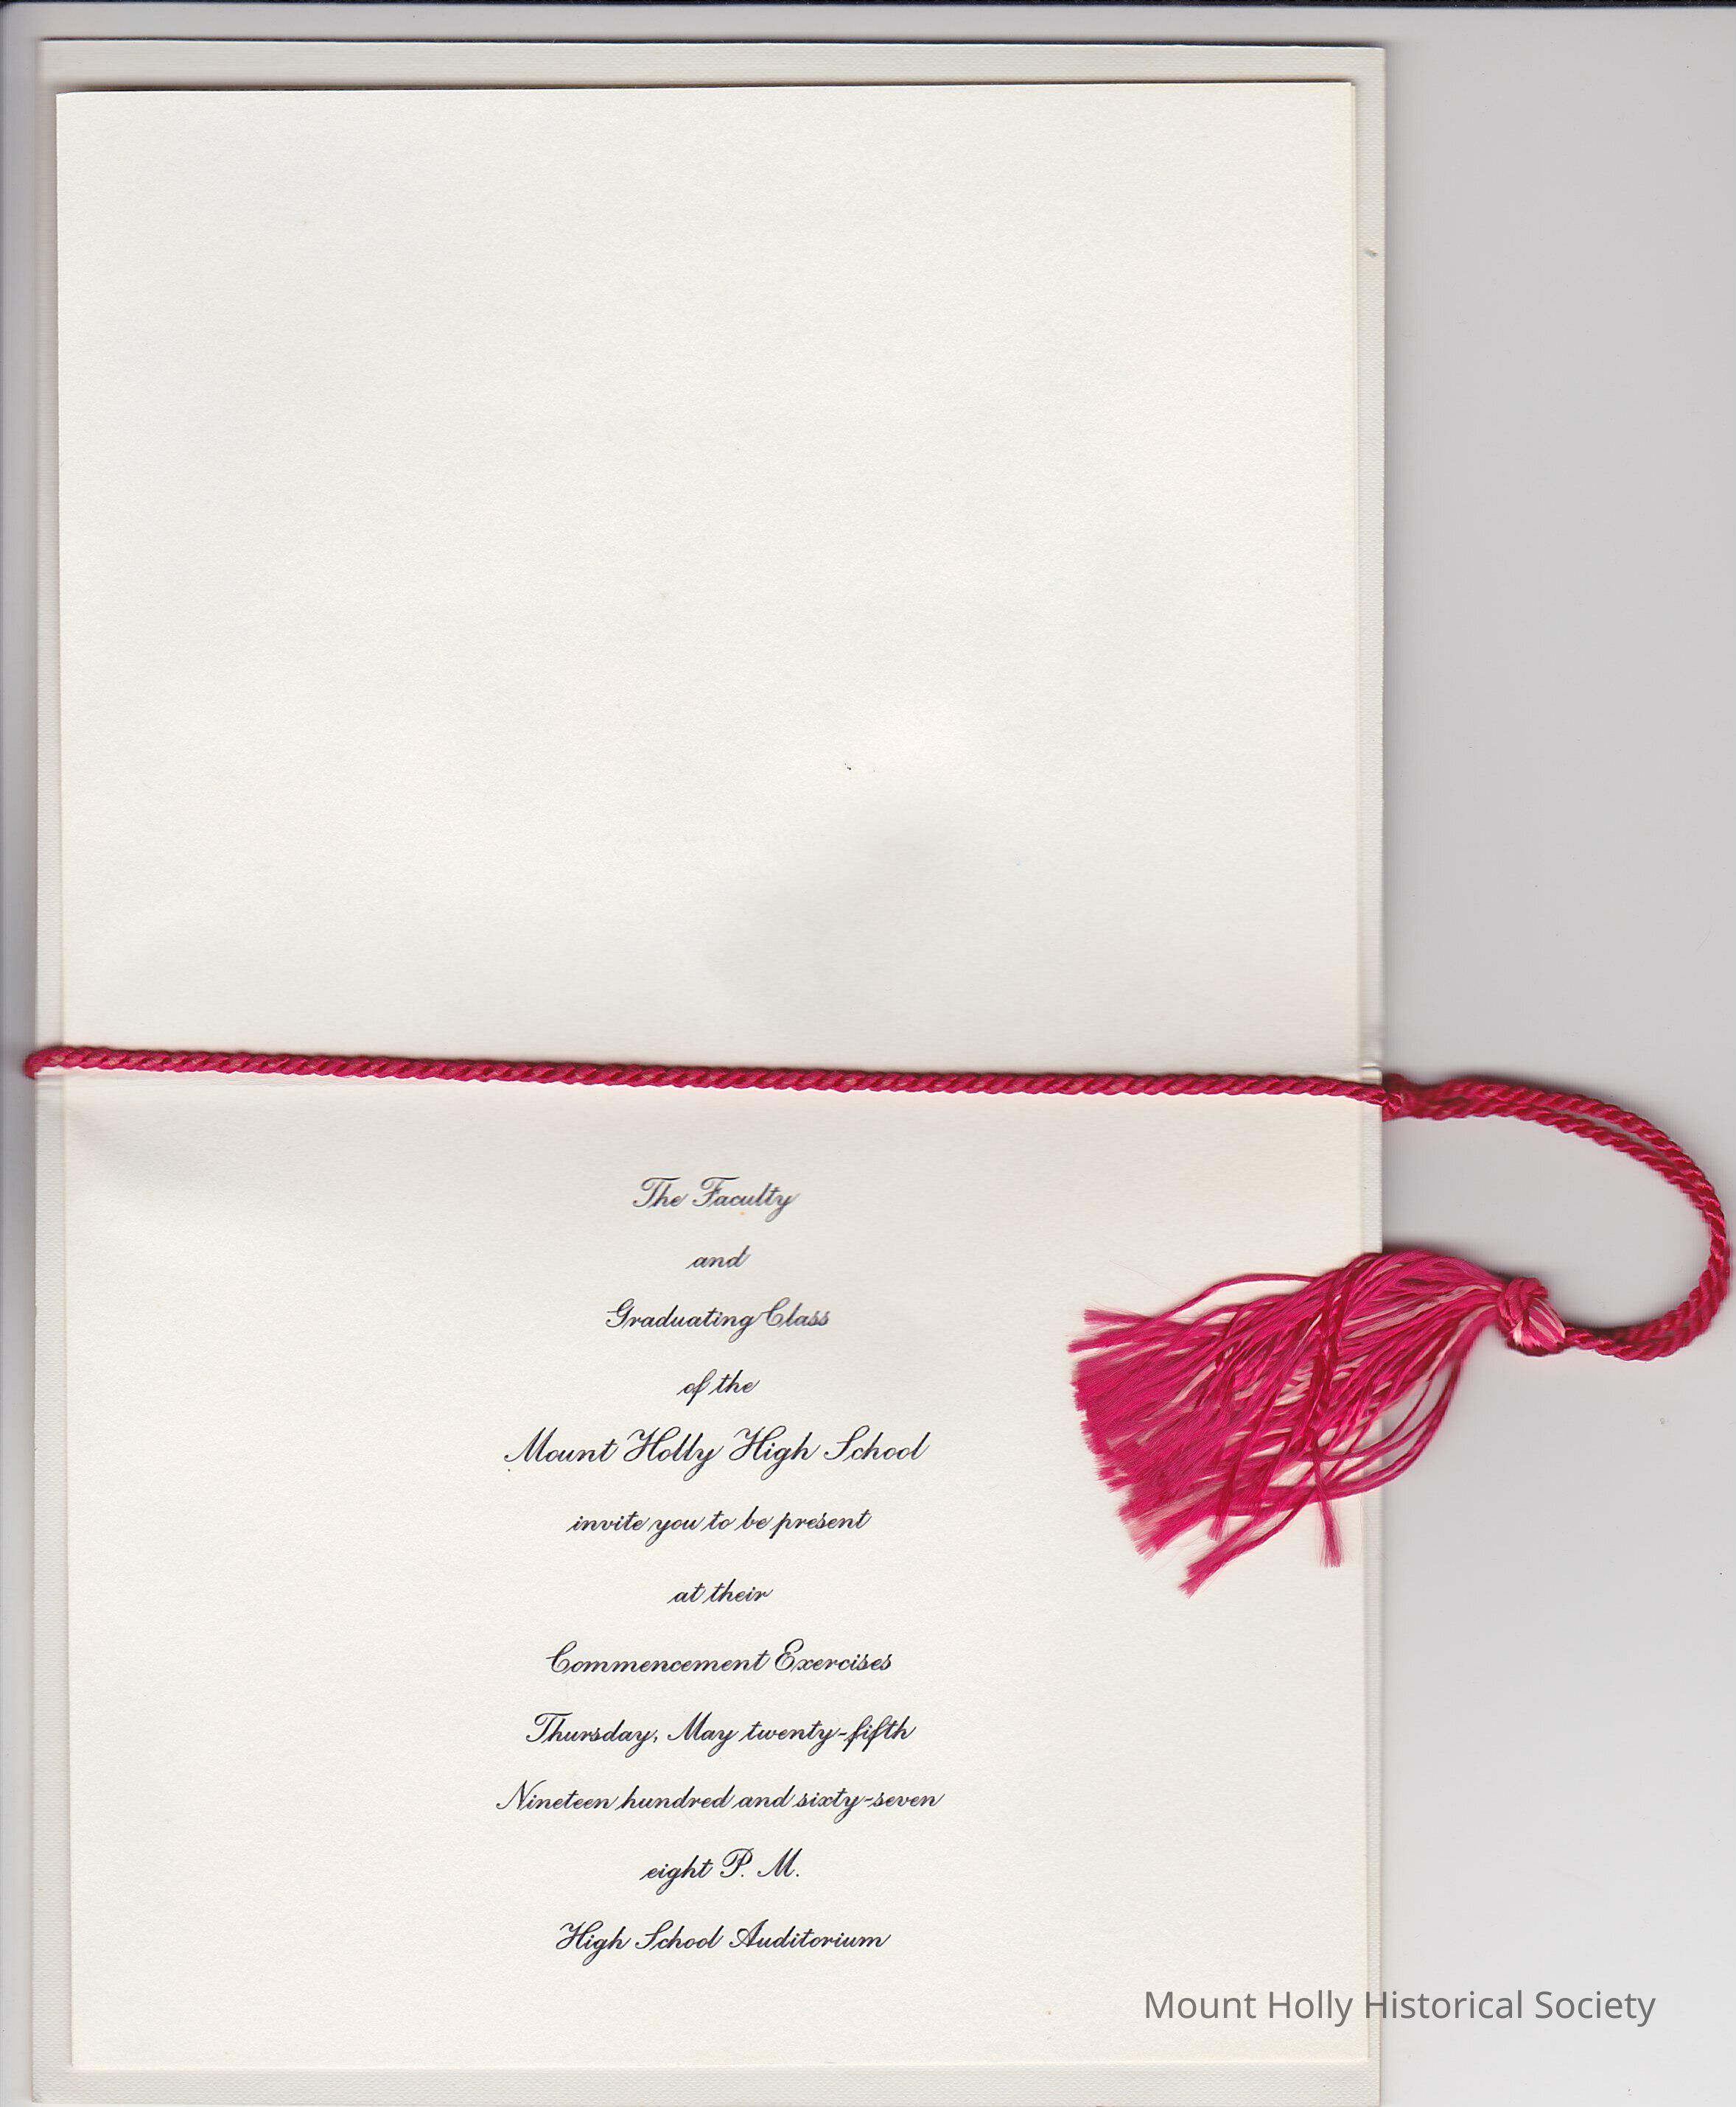 The Faculty
and
Graduating Class
of the
Mount Holly High School
invite you to be present
at their
Commencement Exercises
Thursday, May twenty-fifth
Nineteen hundred and sixty-seven
eight P. M.
High School Auditorium
Mount Holly Historical Society